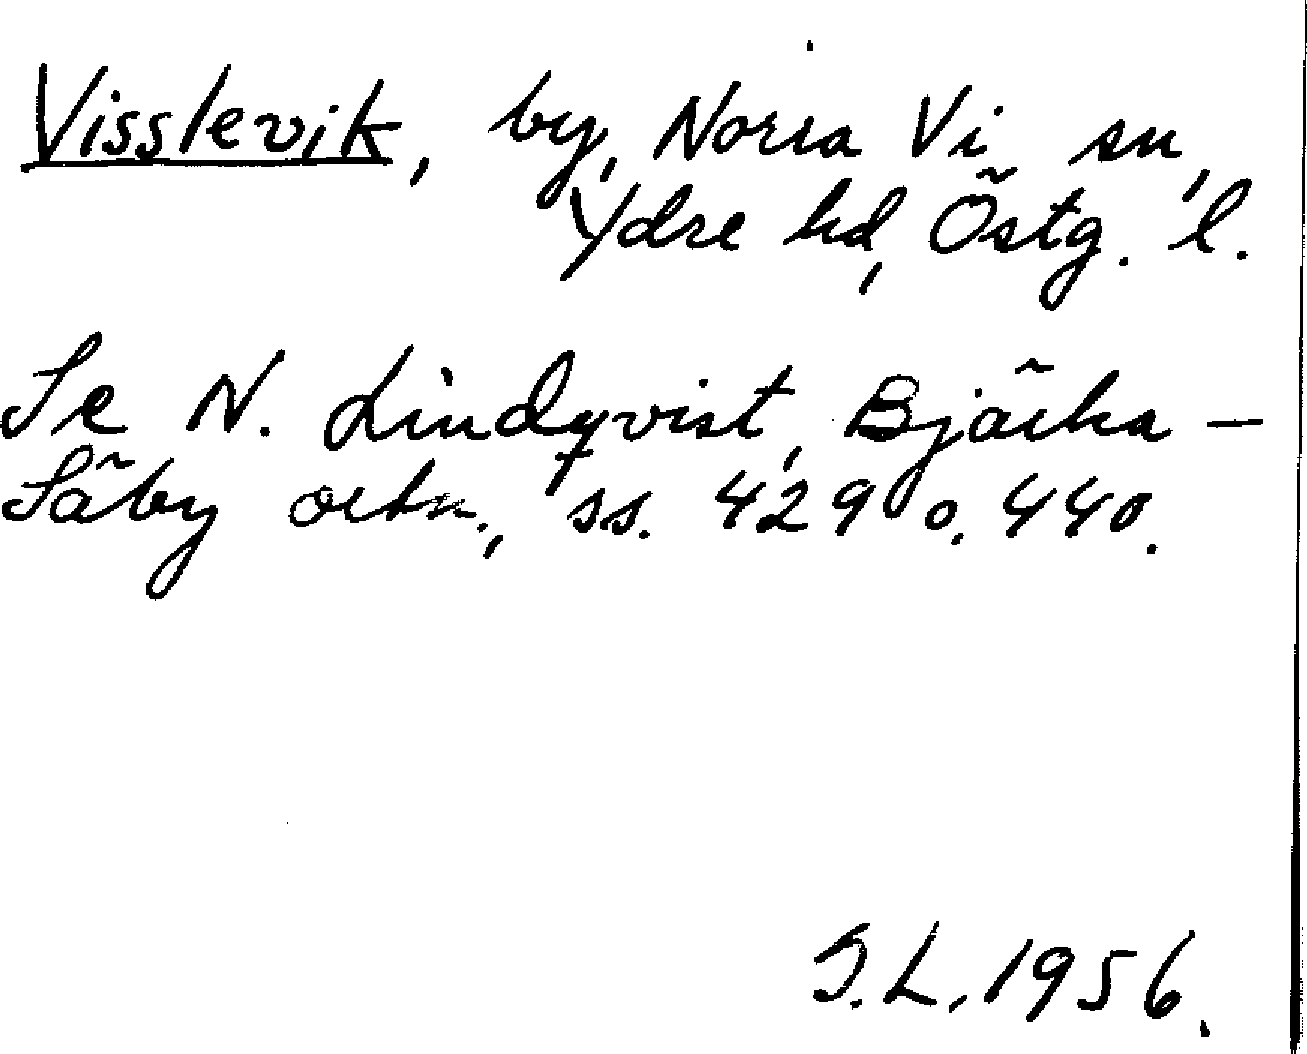 Visslevik, by, Norra Vi sn,
Ydre hd, Östg. l.
Se N. Lindqvist, Bjärka-
Säby ortn., ss. 429 o. 440.
I.L. 1956.